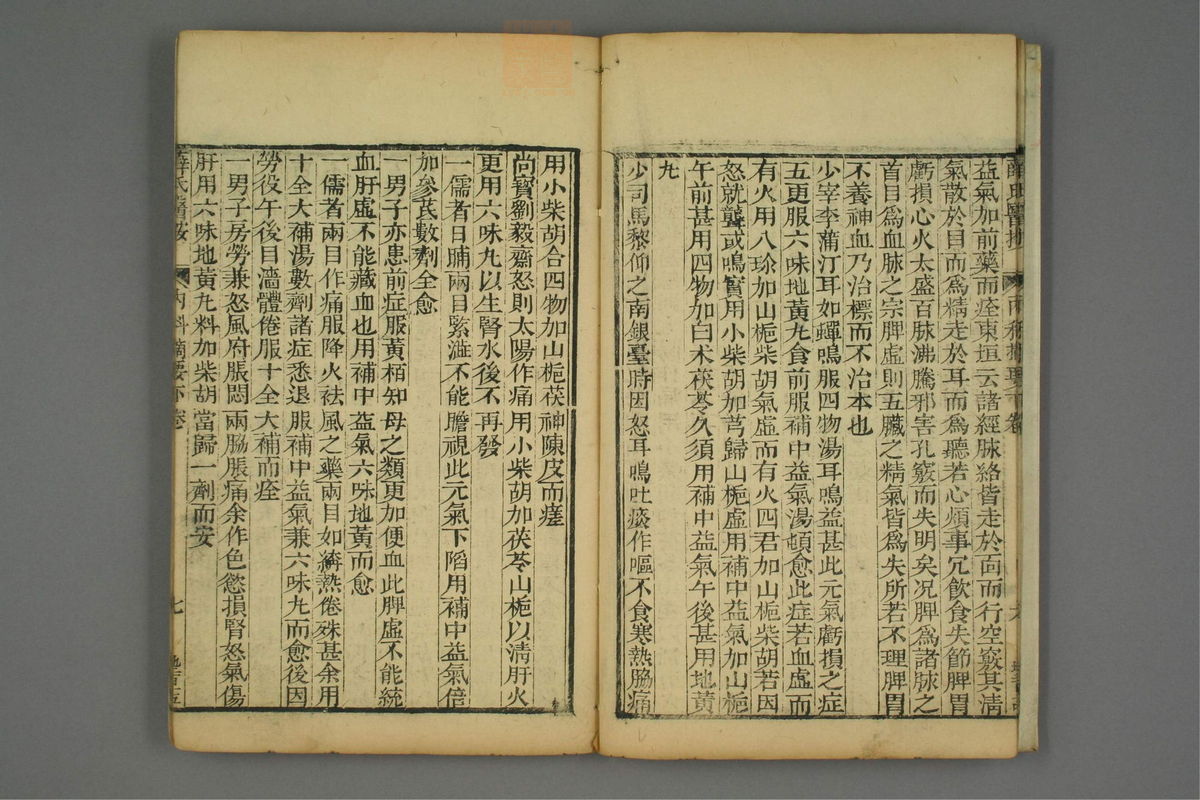 薛氏醫按
內科摘要下卷
六
益氣加前藥而痊東垣云諸經脉絡皆走於面而行空竅其清
氣散於目而爲精走於耳而爲聽若心煩事冗飲食失節脾胃
虧損心火太盛百脉沸騰邪害孔竅而失明矣况脾爲諸脉之
首目爲血脉之宗脾虛則五臟之精氣皆爲失所若不理脾胃
不養神血乃治標而不治本也
少宰李蒲汀耳如蟬鳴服四物湯耳鳴益甚此元氣虧損之症
五更服六味地黄丸食前服補中益氣湯頓愈此症若血虛而
有火用八珍加山梔柴胡氣虛而有火四君加山梔柴胡若因
怒就聾或鳴實用小柴胡加芎歸山梔虛用補中益氣加山梔
午前甚用四物加白术茯苓久須用補中益氣午後甚用地黄
丸
少司馬黎仰之南銀臺時因怒耳鳴吐痰作嘔不食寒熱脇痛
用小柴胡合四物加山梔茯神陳皮而瘥
尚寳劉毅齋怒則太陽作痛用小柴胡加茯苓山梔以清肝火
更用六味丸以生腎水後不再發
一儒者日晡兩目緊澁不能瞻視此元氣下陷用補中益氣倍
加參芪數劑全愈
一男子亦患前症服黄栢知母之類更加便血此脾虛不能統
血肝虛不能藏血也用補中益氣六味地黄而愈
一儒者兩目作痛服降火祛風之藥兩目如緋熱倦殊甚余用
十全大補湯數劑諸症悉退服補中益氣兼六味丸而愈後因
勞役午後目澁體倦服十全大補而痊
一男子房勞兼怒風府脹悶兩脇脹痛余作色慾損腎怒氣傷
肝用六味地黄丸料加柴胡當歸一劑而安
薛氏醫按
內科摘要下卷
七